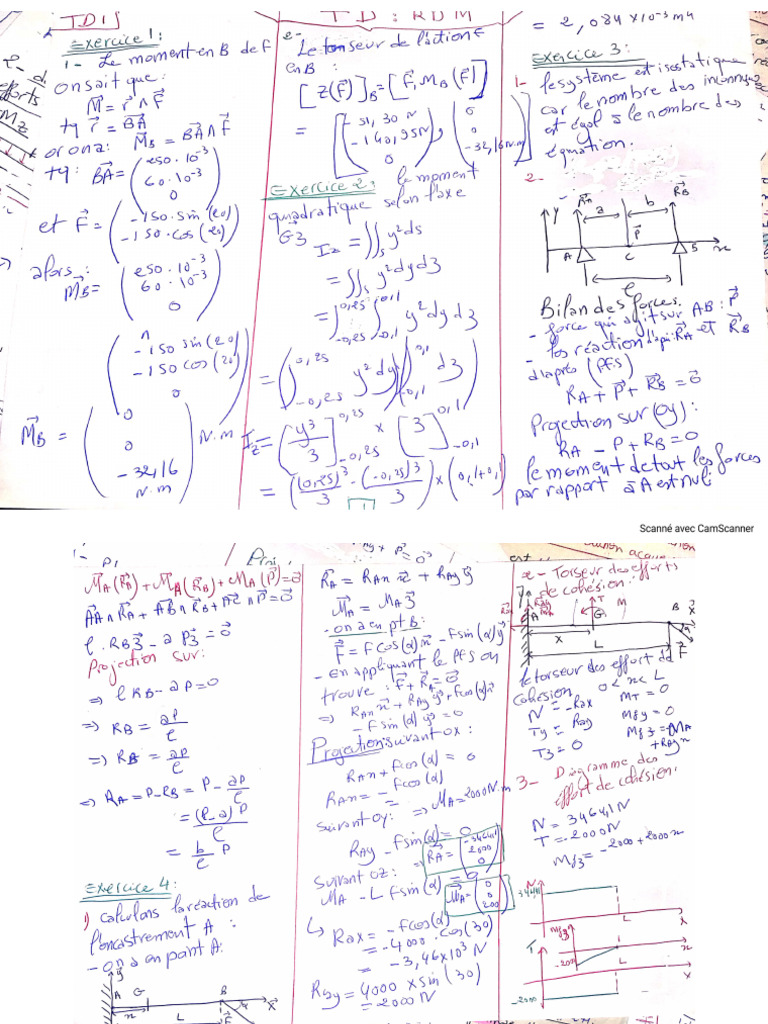 TD1S
TD : RDM
Exercice 1:
1- Le moment en B de F
on sait que:
M = r ∧ F
tq r = BA
or on a: M_B = BA ∧ F
tq: BA = (250·10⁻³
60·10⁻³
0)
et F = (-150·sin(20)
-150·cos(20))
alors:
M_B = (250·10⁻³
60·10⁻³
0)
∧
(-150 sin(20)
-150 cos(20)
0)
M_B = (0
0
-32,16
N.m) N.m
2-
Le tenseur de l'action F
en B:
[Z(F)]_B = [F, M_B(F)]
= [(-51,30N
-140,95N
0), (0
0
-32,16 N.m)]
Exercice 2: le moment
quadratique selon l'axe
G3
Iz = ∬_S y²ds
= ∬_S y²dyd3
= ∫_{-0,25}^{0,25} ∫_{-0,1}^{0,1} y²dyd3
= (∫_{-0,25}^{0,25} y²dy)(∫_{-0,1}^{0,1} d3)
Iz = [y³/3]_{-0,25}^{0,25} × [3]_{-0,1}^{0,1}
= ((0,25)³/3 - (-0,25)³/3) × (0,1+0,1)
1
= 2,084 × 10⁻³ m4
Exercice 3:
1-
le système est isostatique
car le nombre des inconnus
est égal à le nombre des
équation.
2-
y
RA
a
b
RB
P
A
C
B
x
l
Bilan des forces.
- force qui agit sur AB: P
- les réaction d'apui RA et RB
d'après (PFS)
RA + P + RB = 0
Projection sur (oy):
RA - P + RB = 0
le moment de tout les forces
par rapport à A est nul:
Scanné avec CamScanner
M_A(RA) + M_A(RB) + M_A(P) = 0
AA ∧ RA + AB ∧ RB + AC ∧ P = 0
l·RB3 - aP3 = 0
Projection sur:
⇒ lRB - aP = 0
⇒ RB = aP/l
⇒ RB = aP/l
⇒ RA = P - RB = P - aP/l
= (l-a)P/l
= b/l P
Exercice 4:
1) calculons la réaction de
l'encastrement A:
- on a en point A:
y
A
G
B
x
x
L
F
RA = RAx x + RAy y
M_A = M_A 3
- on a en pt B:
F = F cos(α)x - F sin(α)y
- En appliquant le PFS on
trouve: F + RA = 0
⇒ RAx x + RAy y + F cos(α)x
- F sin(α) y = 0
Projection suivant ox:
RAx + F cos(α) = 0
RAx = -F cos(α)
⇒ M_A = 2000 N.m
suivant oy:
RAy - F sin(α) = 0
⇒ RA = (-3464,1
2000
0)
suivant oz:
M_A - L F sin(α) = 0
M_A = (0
0
200)
↳ RAx = -F cos(α)
= -4000·cos(30)
= -3,46×10³ N
RAy = 4000 × sin(30)
= 2000 N
2- Torseur des efforts
de cohésion:
A
T
M
G
B
x
x
L
F
le torseur des effort de
cohésion
0 < x < L
N = -RAx
MT = 0
Ty = -RAy
Mfy = 0
T3 = 0
Mf3 = -M_A
+RAy x
3- Diagramme des
effort de cohésion.
N = 3464,1 N
T = -2000 N
Mf3 = -2000 + 2000 x
N
3464,1
L
x
Mf3
-2000
L
x
T
-2000
L
x